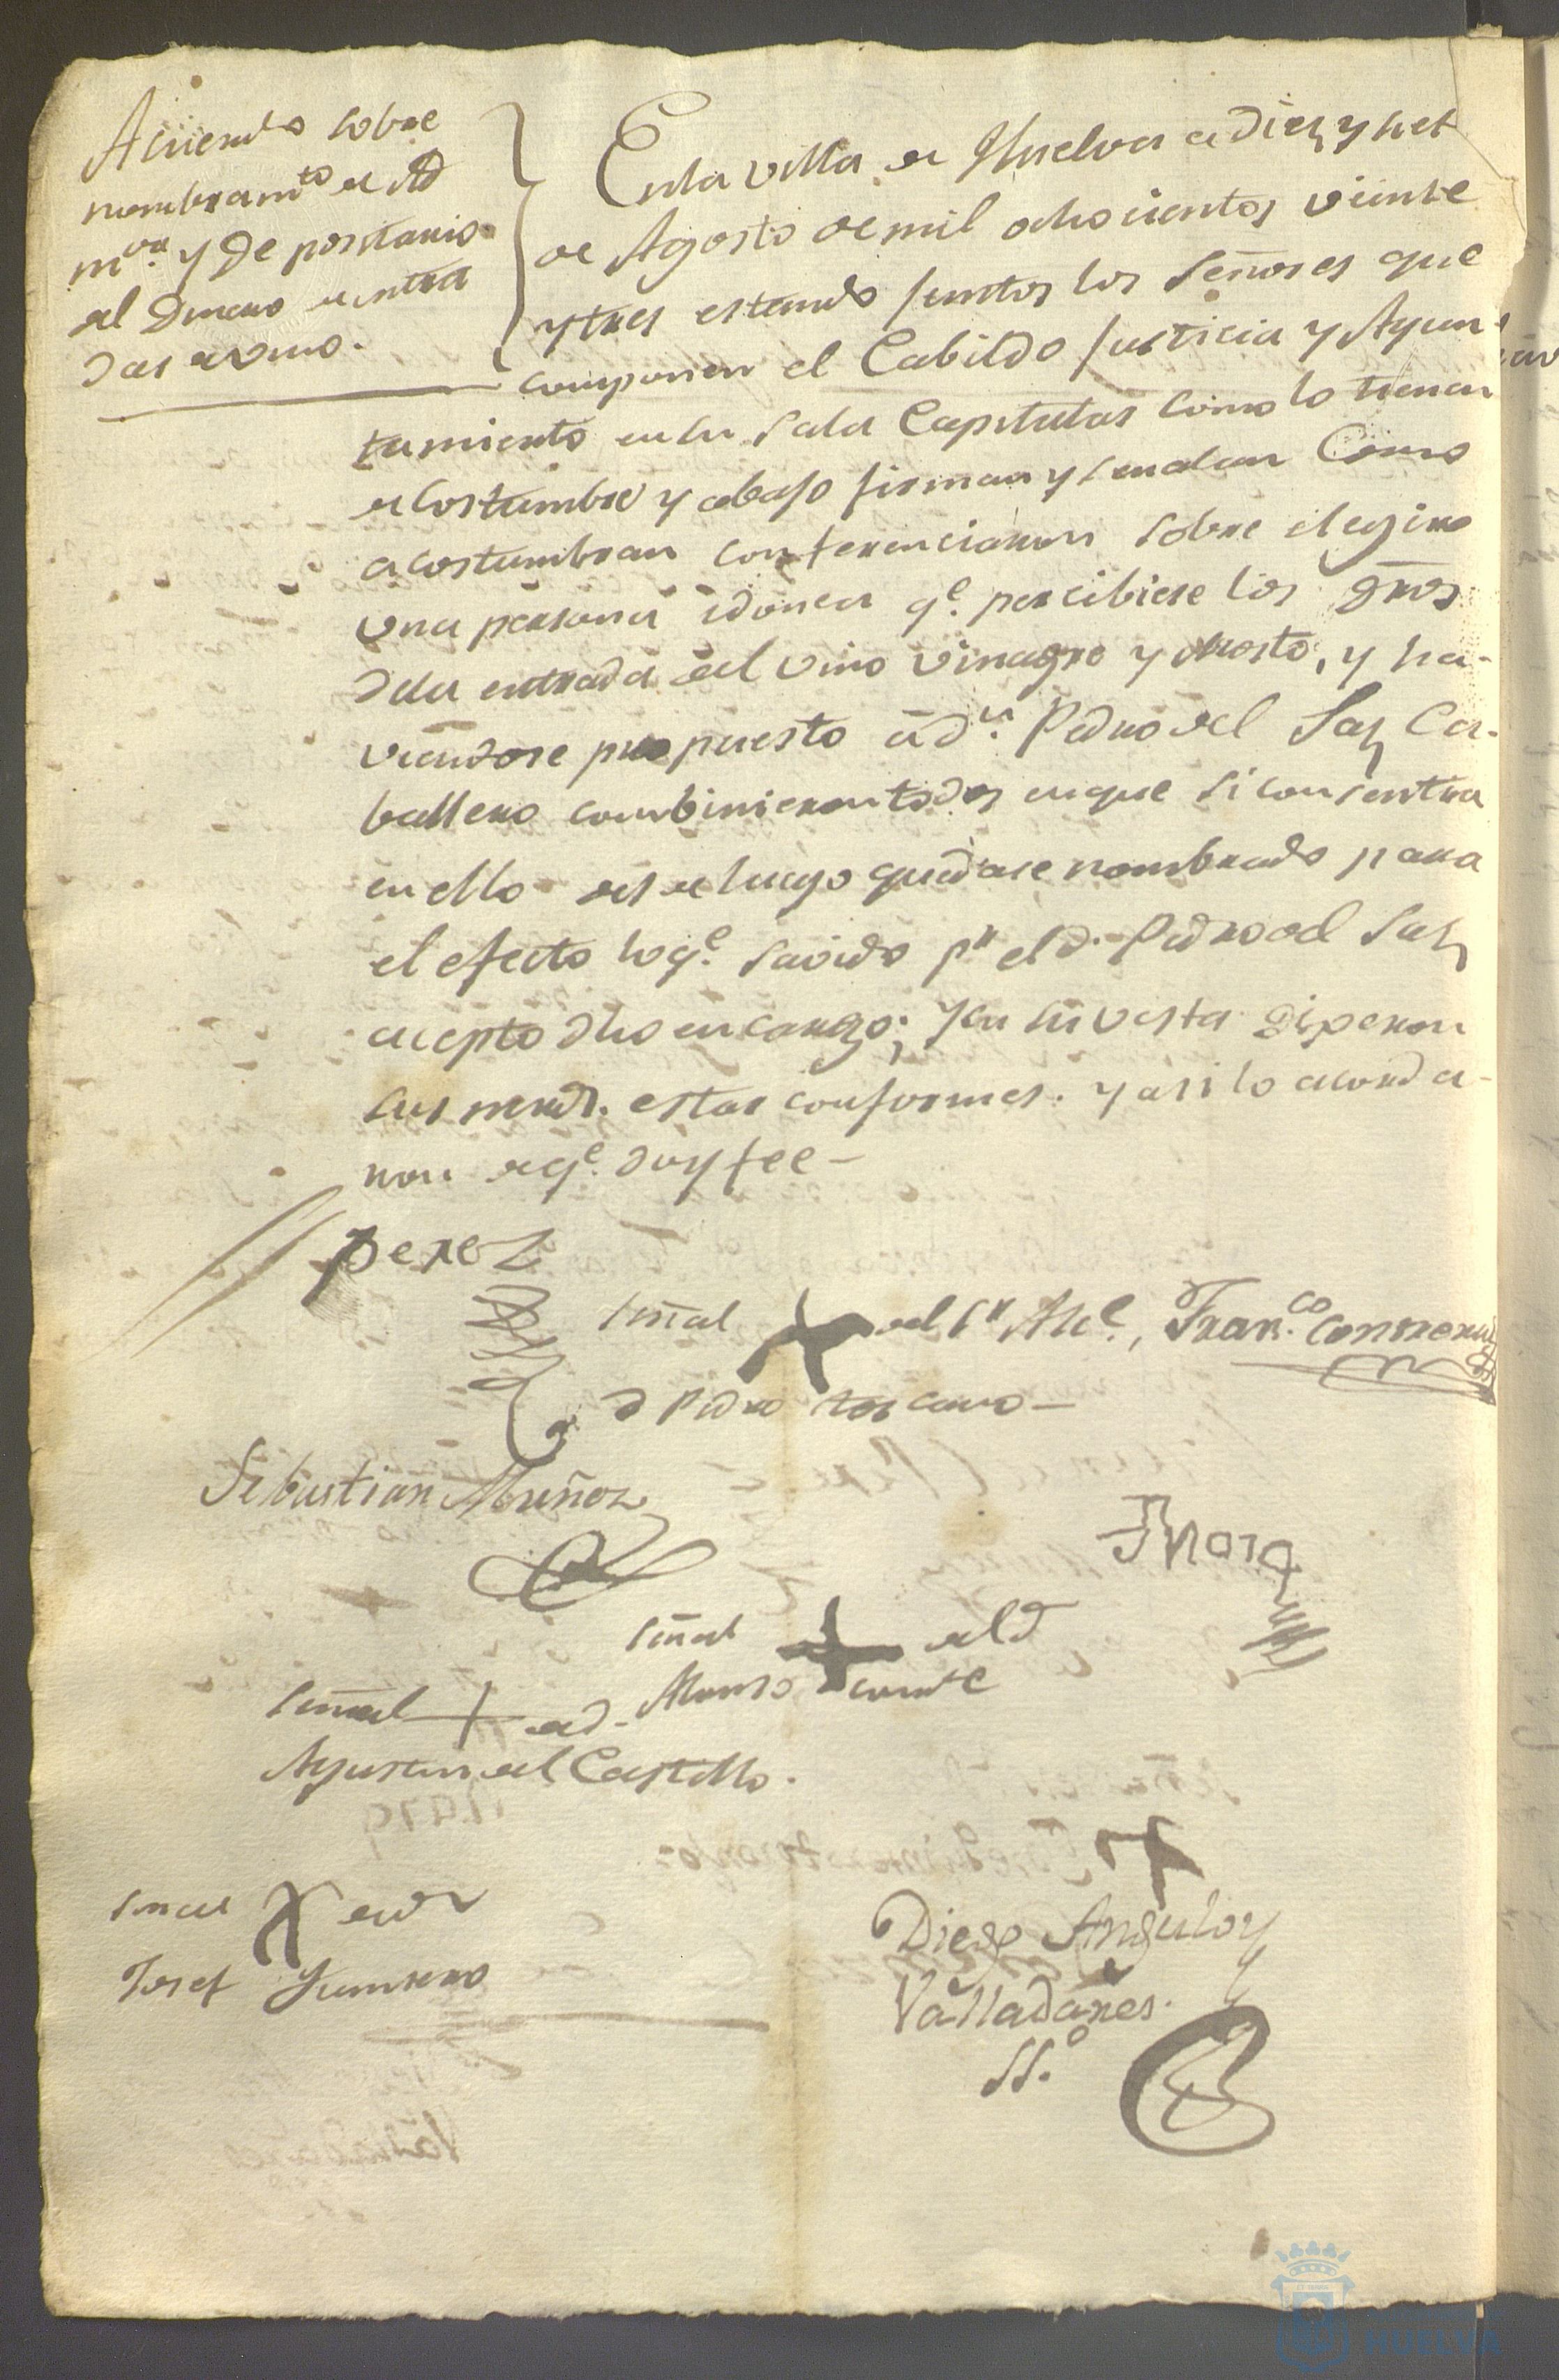 Acuerdo sobre
nombram.to de Ad
m.or y Depositario
del Dinero de entra
das de vino.
En la villa de Huelva a diez y siet
de Agosto de mil ochocientos veinte
y tres estando juntos los Señores que
componen el Cabildo Justicia y Ayun-
tamiento en su Sala Capitular como lo tienen
de costumbre y abajo firman y señalan Como
acostumbran conferenciaron sobre elegir
una persona idonea q.e percibiese los dros
dela entrada del vino vinagre y Mosto, y ha-
viendose propuesto a d.n Pedro del Saz Ca-
ballero combinieron todos en que si consentia
en ello desde luego quedase nombrado para
el efecto lo q.e savido p.r el d. Pedro del Saz
acepto dho encargo; y en su vista dixeron
sus mrds. estar conformes. y asi lo acorda-
ron de q.e doy fee -
Perez
Señal del Sr Alc.e, Fran.co Contrera
d Pedro toscano -
Sebastian Muñoz
Señal del d
Alonso conde
Señal de d.
Agustin del Castillo.
Señal de dn
Josef
Diego Angulo y
Valladares.
SS.o
HUELVA